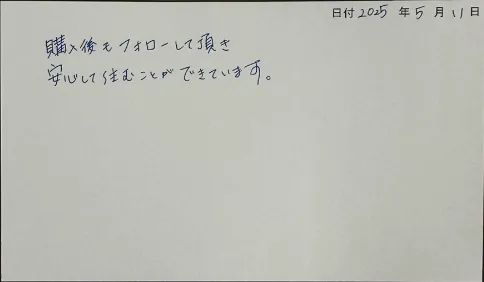 日付 2025 年 5 月 11 日
購入後もフォローして頂き
安心して住むことができています。